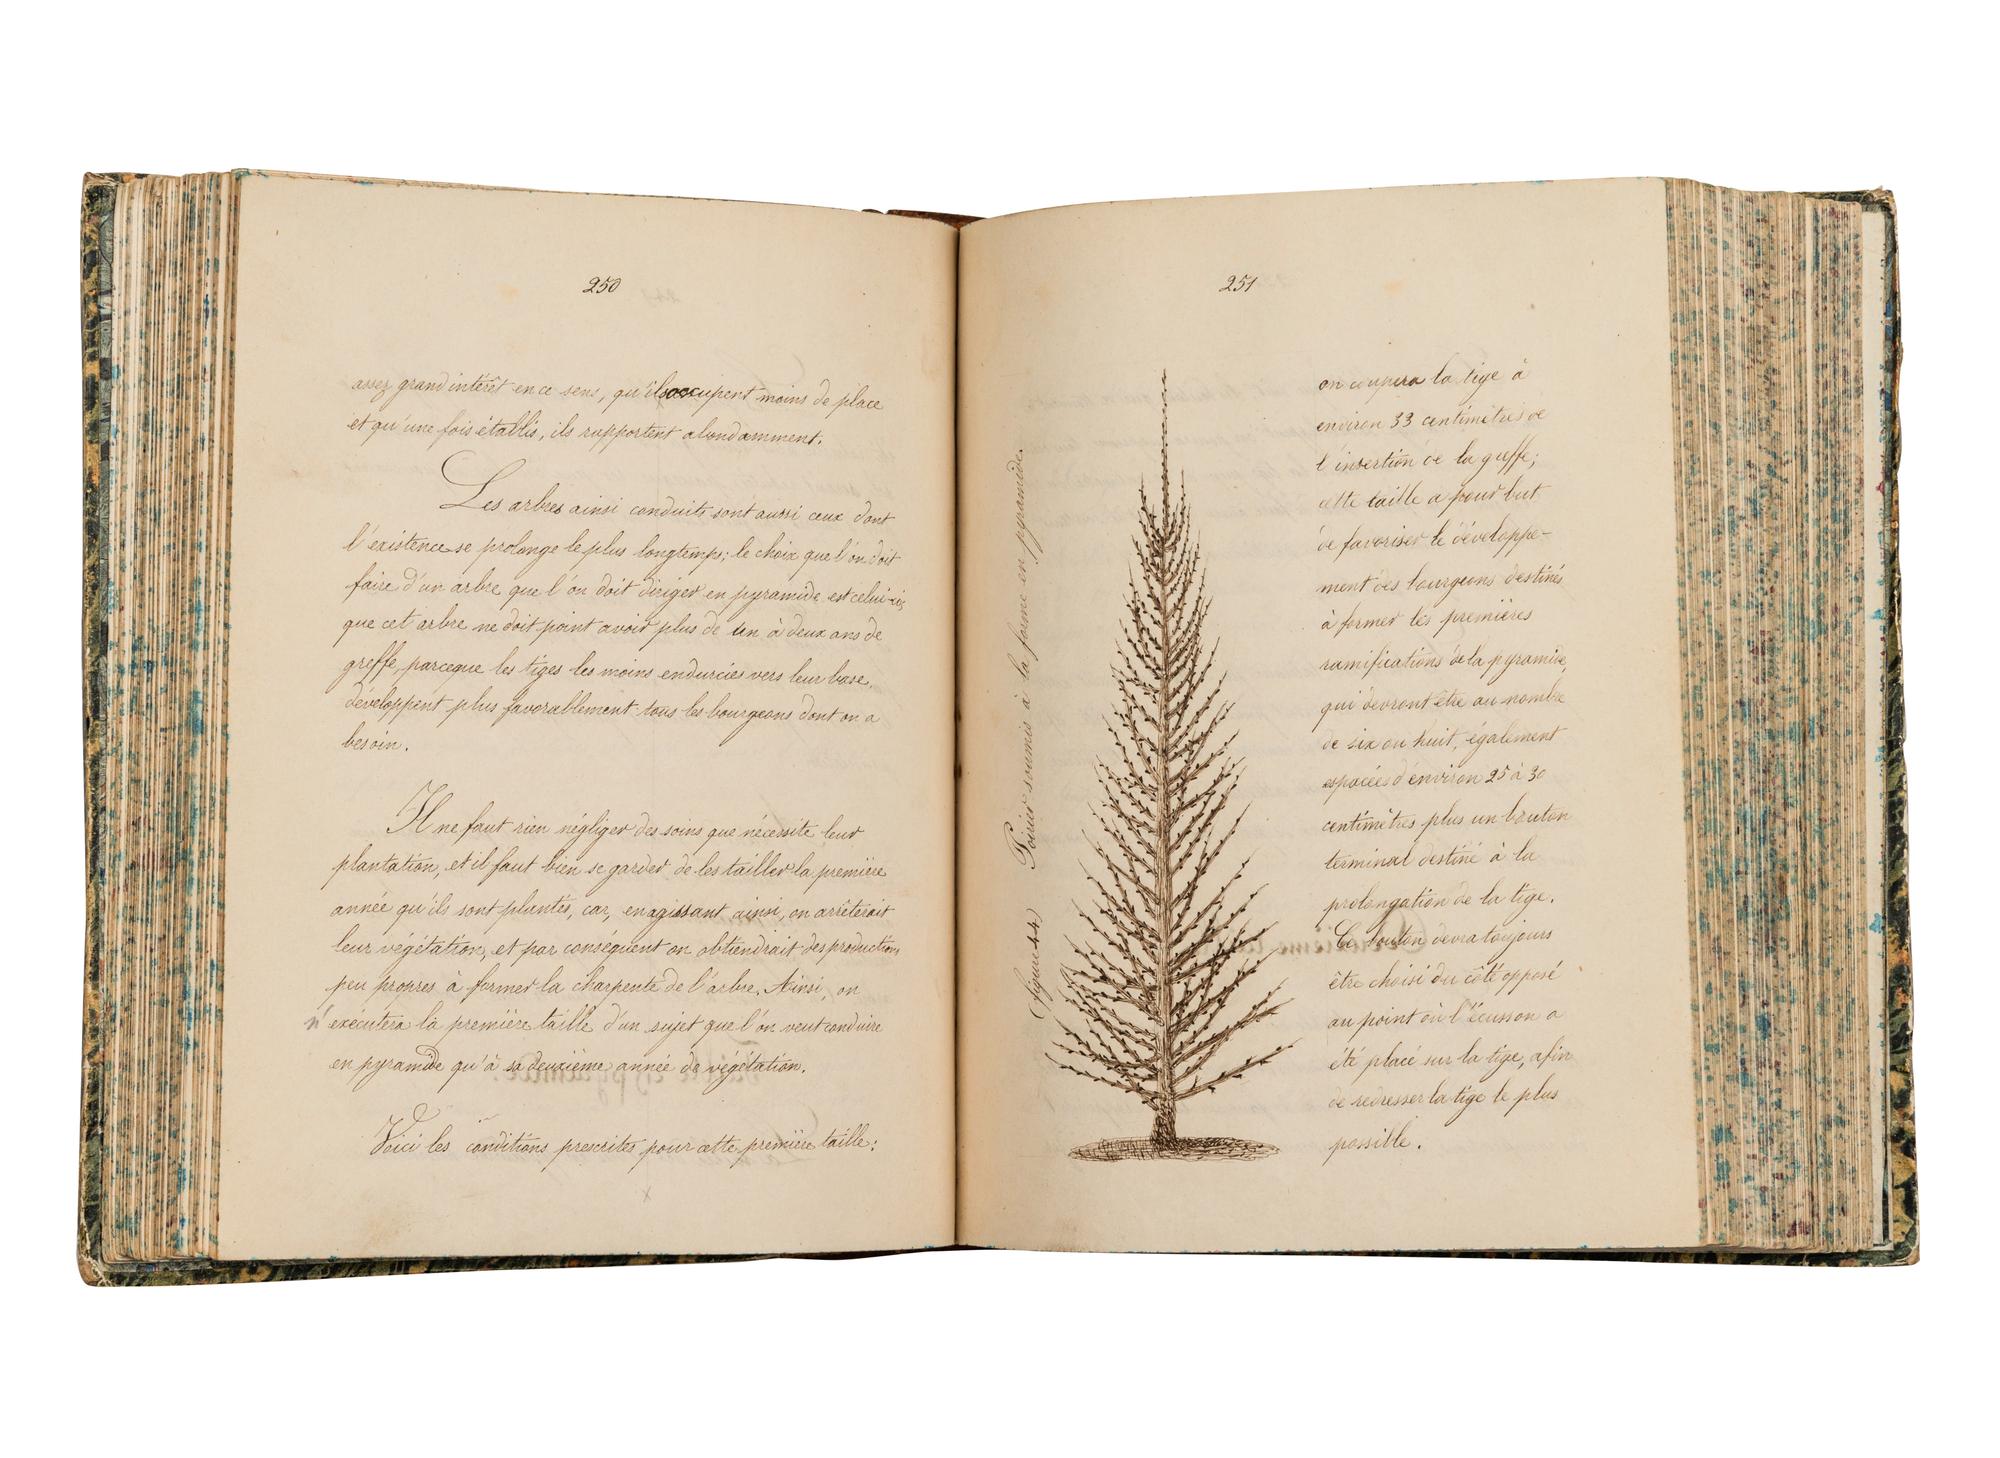 250
assez grand intérêt en ce sens, qu'ils occupent moins de place
et qu'une fois établis, ils rapportent abondamment.
Les arbres ainsi conduits sont aussi ceux dont
l'existence se prolonge le plus longtemps; le choix que l'on doit
faire d'un arbre que l'on doit diriger en pyramide est celui-ci;
que cet arbre ne doit point avoir plus de un à deux ans de
greffe, parceque les tiges les moins endurcies vers leur base,
développent plus favorablement tous les bourgeons dont on a
besoin.
Il ne faut rien négliger des soins que nécessite leur
plantation, et il faut bien se garder de les tailler la première
année qu'ils sont plantés, car, en agissant ainsi, on arrêterait
leur végétation, et par conséquent on obtiendrait des productions
peu propres à former la charpente de l'arbre. Ainsi, on
n'exécutera la première taille d'un sujet que l'on veut conduire
en pyramide qu'à sa deuxième année de végétation.
Voici les conditions prescrites pour cette première taille:
251
(figure 44) Poirier soumis à la forme en pyramide.
on coupera la tige à
environ 33 centimètres de
l'insertion de la greffe;
cette taille a pour but
de favoriser le développe-
ment des bourgeons destinés
à former les premières
ramifications de la pyramide,
qui devront être au nombre
de six ou huit, également
espacées d'environ 25 à 30
centimètres plus un bouton
terminal destiné à la
prolongation de la tige.
Ce bouton devra toujours
être choisi du côté opposé
au point où l'écusson a
été placé sur la tige, afin
de redresser la tige le plus
possible.